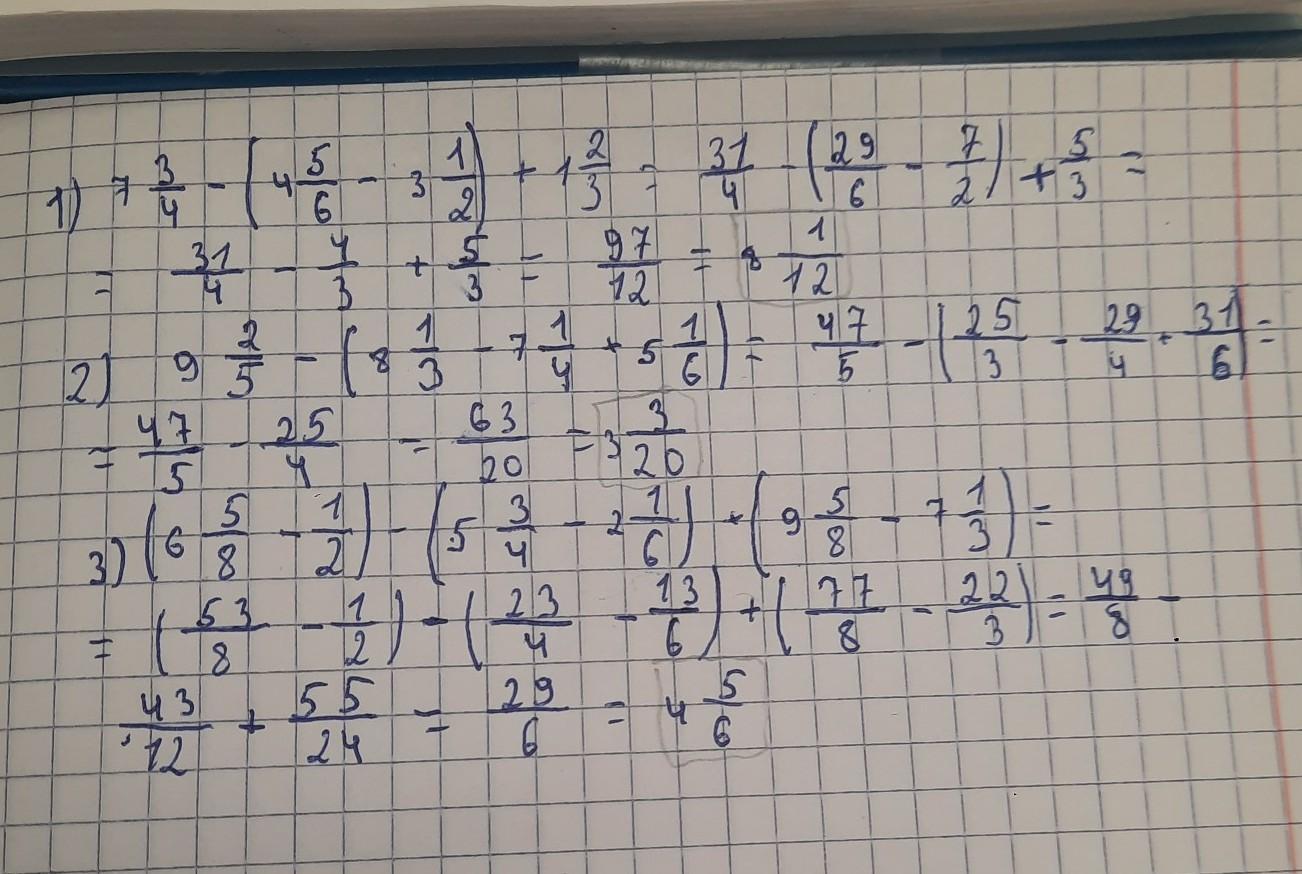 1) 7 3/4 - (4 5/6 - 3 1/2) + 1 2/3 = 31/4 - (29/6 - 7/2) + 5/3 =
= 31/4 - 4/3 + 5/3 = 97/12 = 8 1/12
2) 9 2/5 - (8 1/3 - 7 1/4 + 5 1/6) = 47/5 - (25/3 - 29/4 + 31/6) =
= 47/5 - 25/4 = 63/20 = 3 3/20
3) (6 5/8 - 1/2) - (5 3/4 - 2 1/6) + (9 5/8 - 7 1/3) =
= (53/8 - 1/2) - (23/4 - 13/6) + (77/8 - 22/3) = 49/8 -
43/12 + 55/24 = 29/6 = 4 5/6